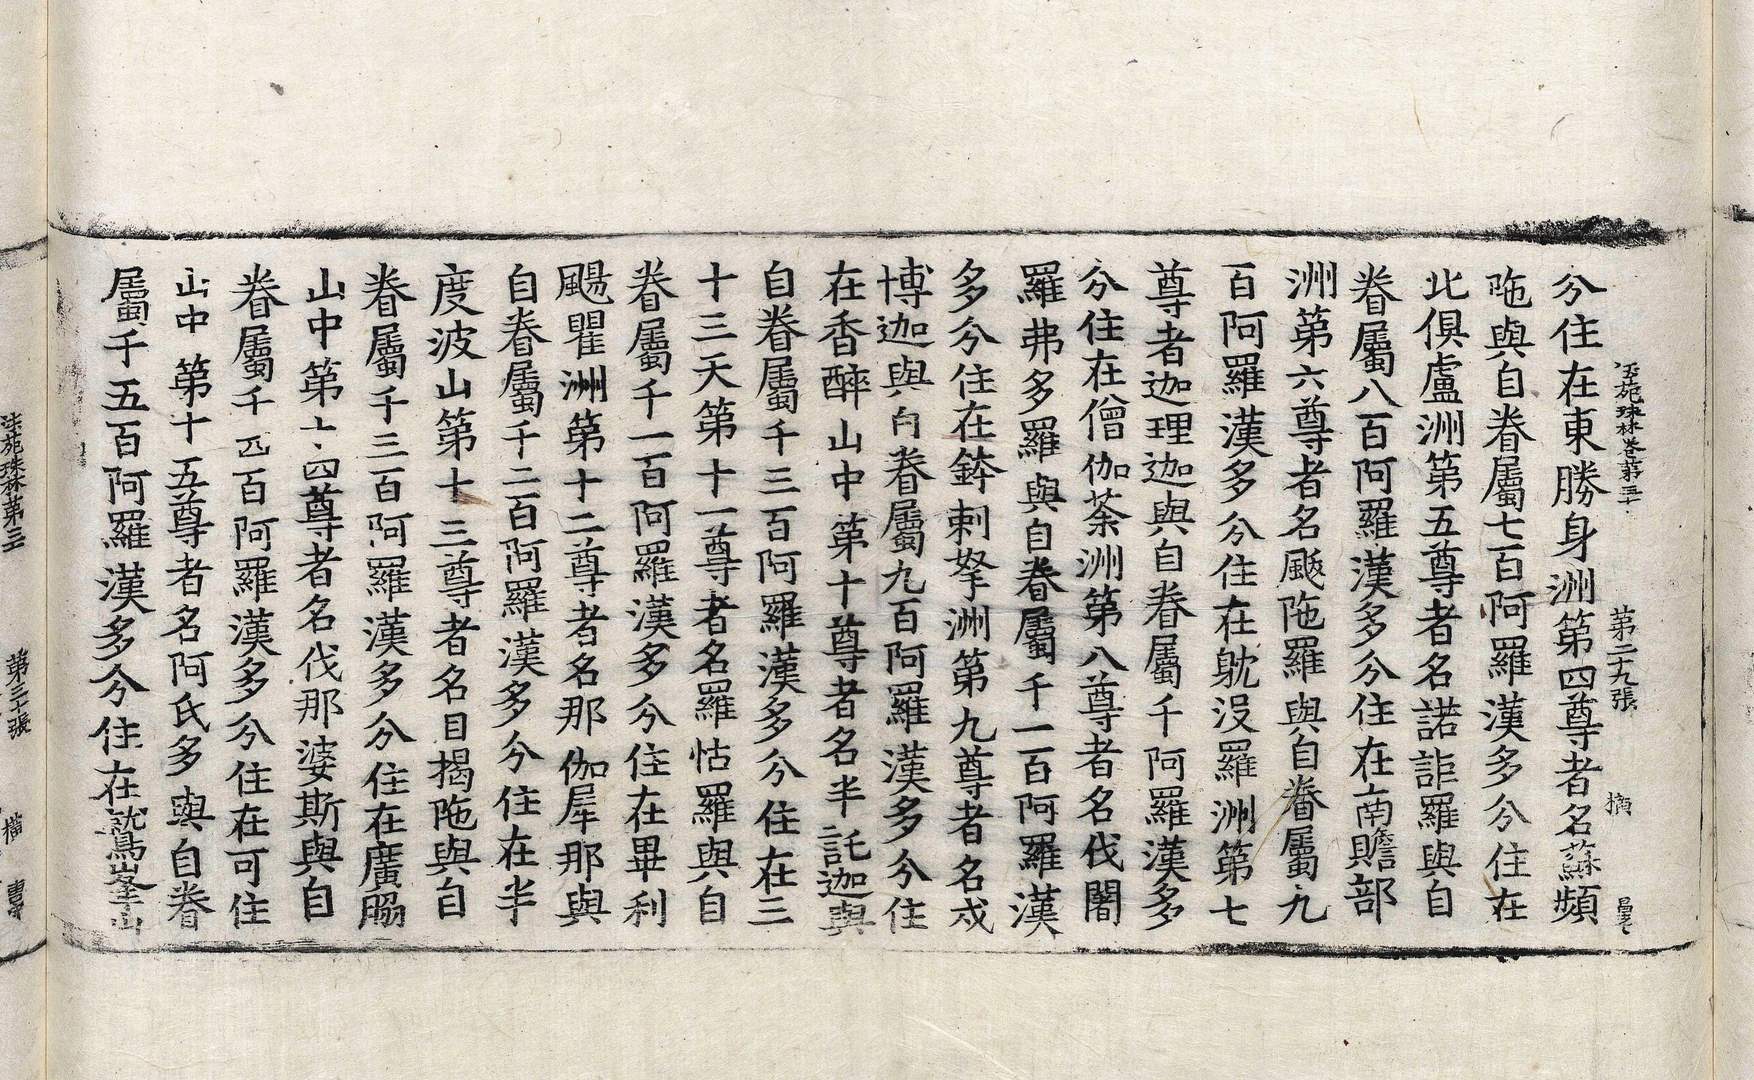 法苑珠林卷第三十 第二十九張 摘
分住在東勝身洲第四尊者名蘇頻
陁與自眷屬七百阿羅漢多分住在
北俱盧洲第五尊者名諾詎羅與自
眷屬八百阿羅漢多分住在南贍部
洲第六尊者名颰陁羅與自眷屬九
百阿羅漢多分住在躭没羅洲第七
尊者迦理迦與自眷屬千阿羅漢多
分住在僧伽荼洲第八尊者名伐闍
羅弗多羅與自眷屬千一百阿羅漢
多分住在鉢剌拏洲第九尊者名戍
博迦與自眷屬九百阿羅漢多分住
在香醉山中第十尊者名半託迦與
自眷屬千三百阿羅漢多分住在三
十三天第十一尊者名羅怙羅與自
眷屬千一百阿羅漢多分住在畢利
颺瞿洲第十二尊者名那伽犀那與
自眷屬千二百阿羅漢多分住在半
度波山第十三尊者名目揭陁與自
眷屬千三百阿羅漢多分住在廣脇
山中第十四尊者名伐那婆斯與自
眷屬千四百阿羅漢多分住在可住
山中第十五尊者名阿氏多與自眷
屬千五百阿羅漢多分住在鷲峯山
法苑珠林第三 第三十張